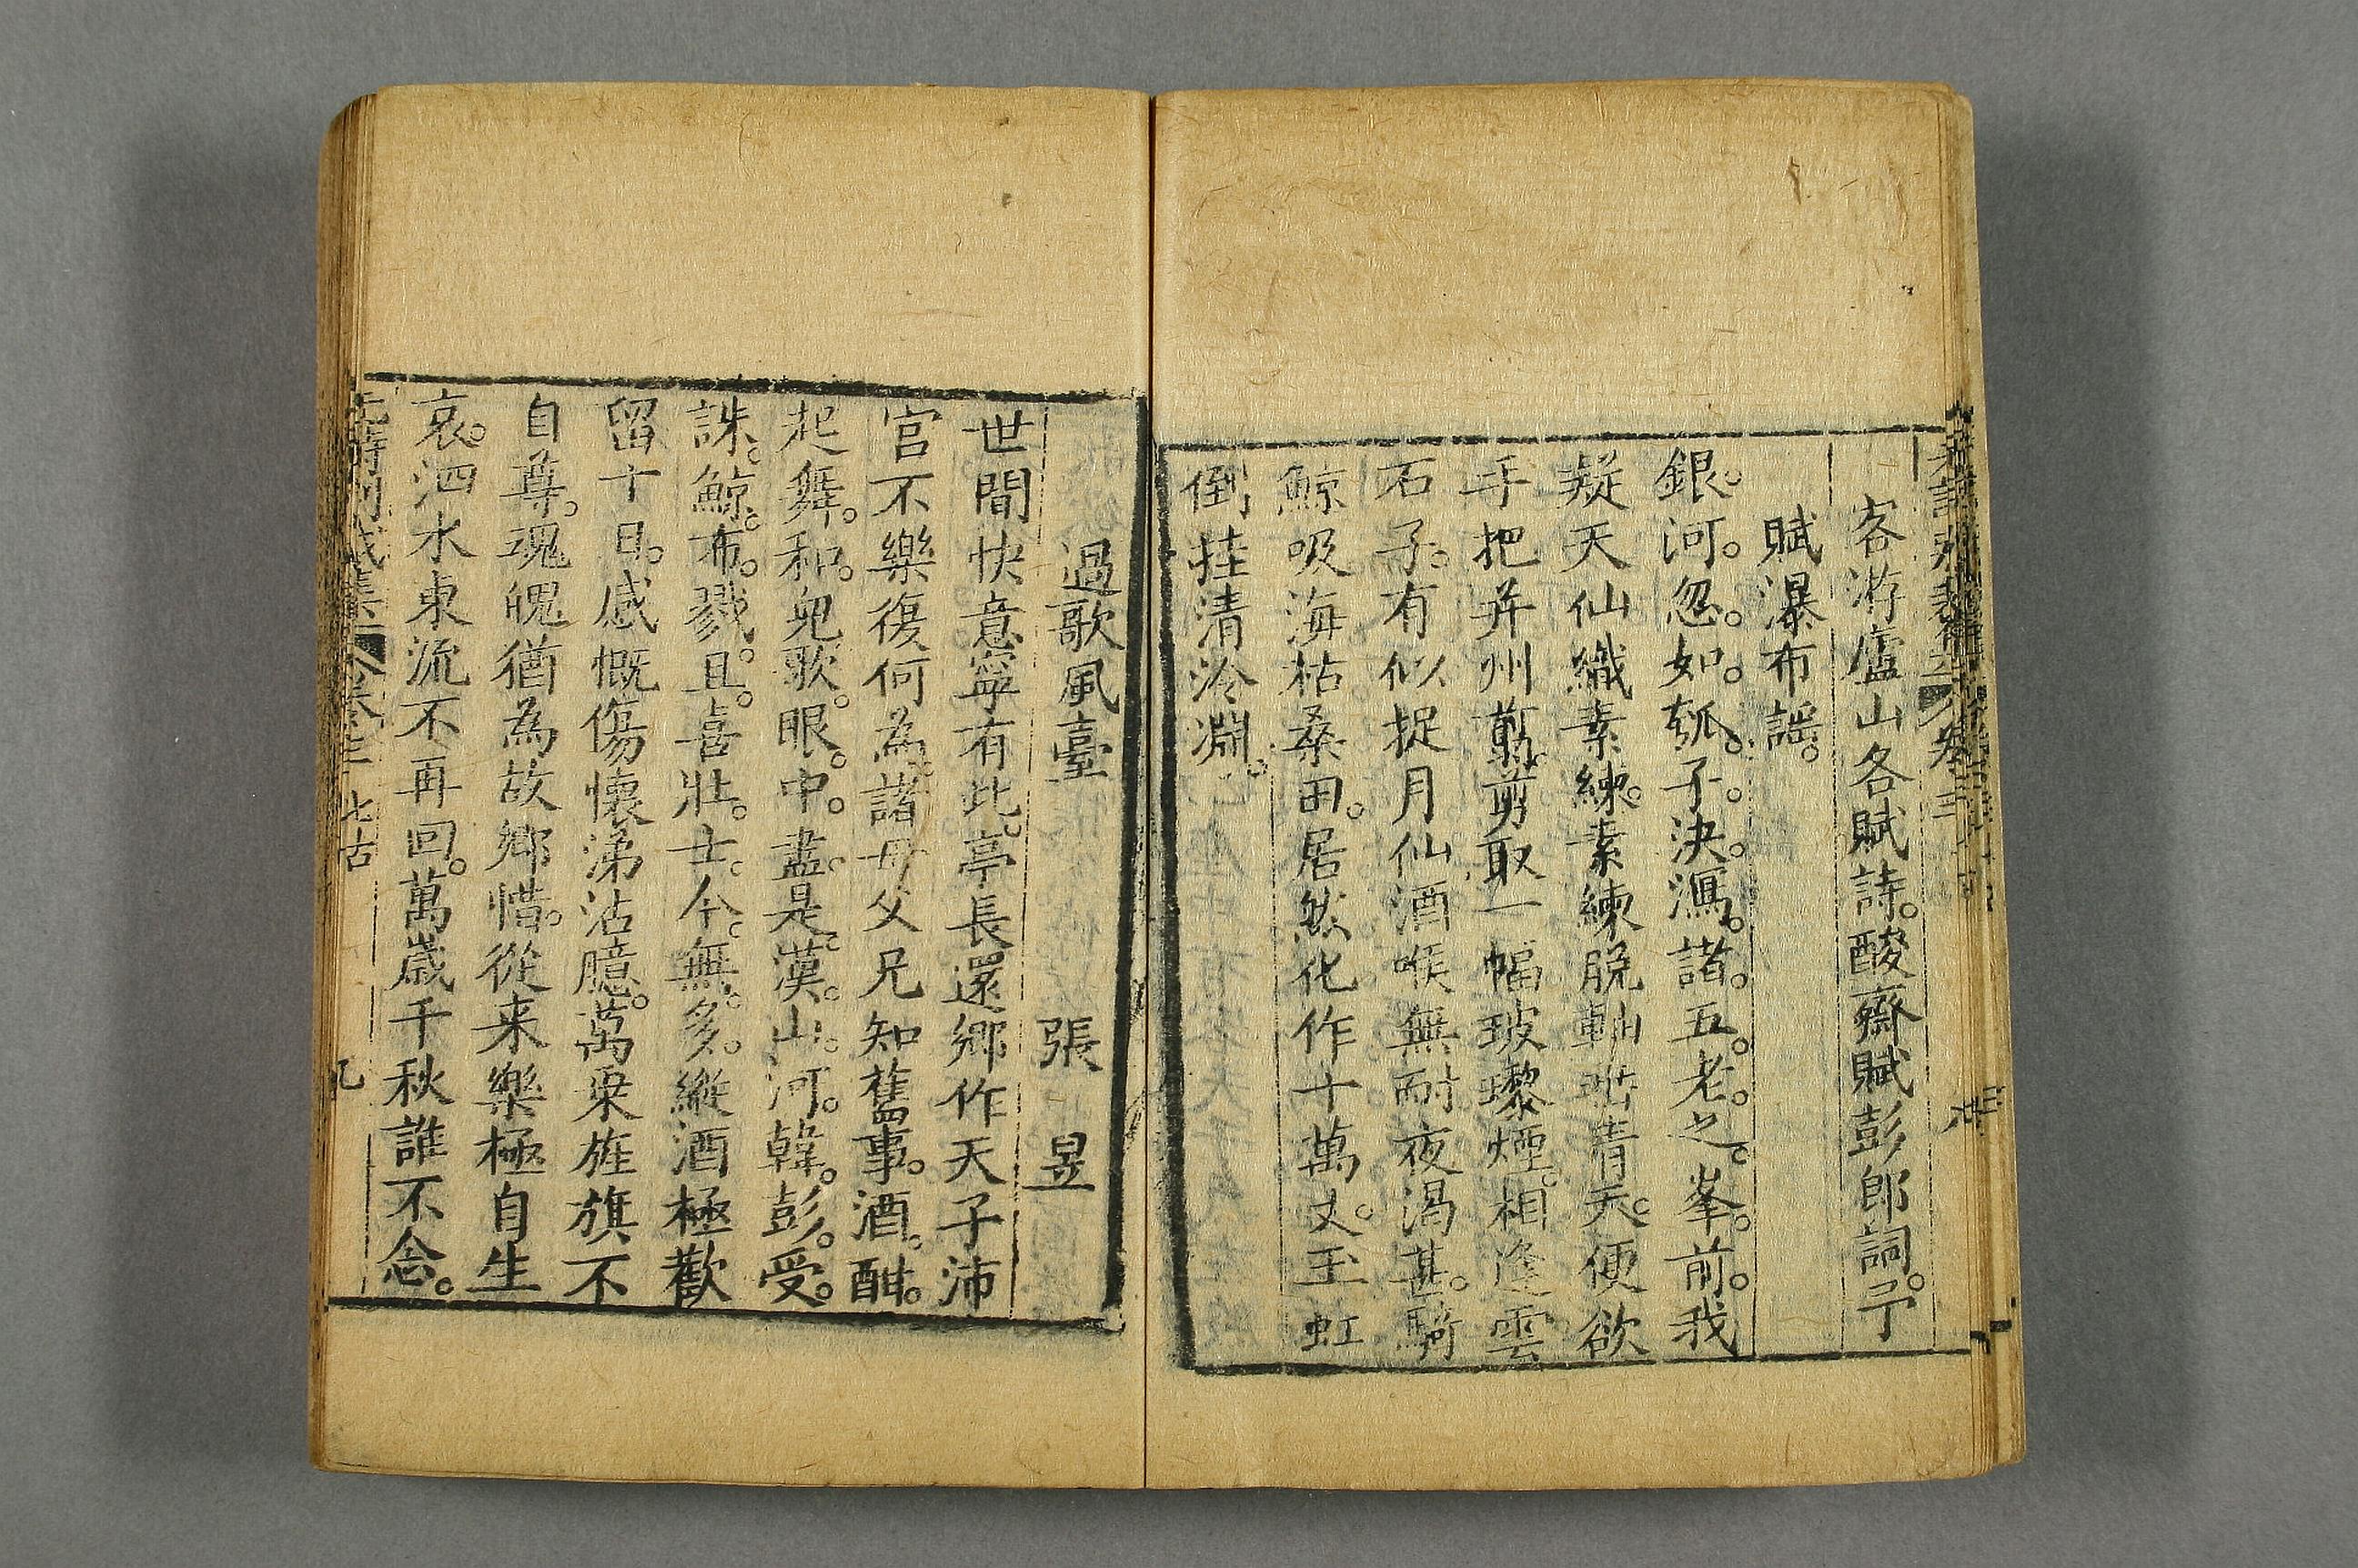 客游廬山各賦詩。酸齋賦彭郎詞。予
賦瀑布謡。
銀。河。忽。如。瓠。子。決。瀉。諸。五。老。之。峯。前。我
疑天仙織素練。素練脫軸掛青天。便欲
手把并州剪。剪取一幅玻瓈煙。相逢雲
石子。有似捉月仙酒喉無耐夜渴甚。騎
鯨吸海枯桑田。居然化作十萬丈。玉虹
倒挂清泠淵。
過歌風臺 張昱
世間快意寧有此。亭長還鄉作天子沛
宮不樂復何為。諸母父兄知舊事。酒。酣。
起。舞。和。兒歌。眼。中。盡。是。漢。山。河。韓。彭。受。
誅。鯨。布。戮。且。喜壯。士。今。無。多。縱酒極歡
留十日。感慨傷懷涕沾臆。萬乗旌旗不
自尊。魂魄猶為故鄉惜。從来樂極自生
哀。泗水東流不再回。萬歲千秋誰不念。
卷三 七古 九